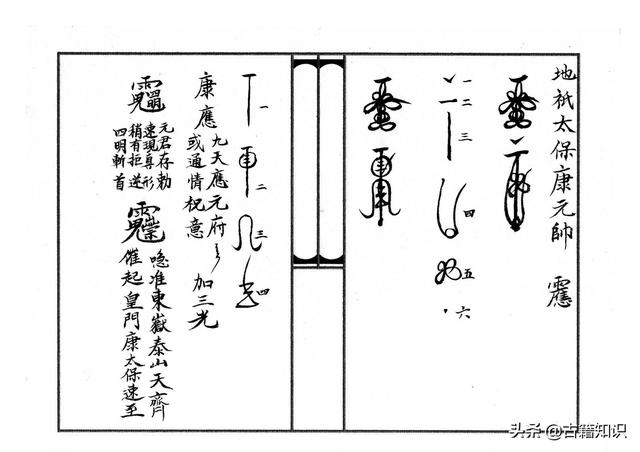 地祇太保康元帥
一
二
三
四
五
六
一
二
三
四
康應
九天應元府
或通情祝意
加三光
元君存勅
速現真形
稍有拒逆
四明斬首
唵准東嶽泰山天齊
催起皇門康太保速至
头条 @古籍知识